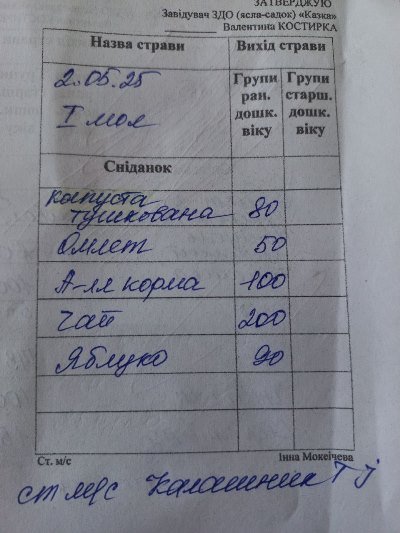 ЗАТВЕРДЖУЮ
Завідувач ЗДО (ясла-садок) «Казка»
Валентина КОСТИРКА
Назва страви Вихід страви
2.05.25 Групи ран. дошк. віку Групи старш. дошк. віку
І моя
Сніданок
капуста
тушкована 80
Омлет 50
А-ля корма 100
Чай 200
Яблуко 90
Ст. м/с Інна Мокеічева
ст м/с Калашник Т